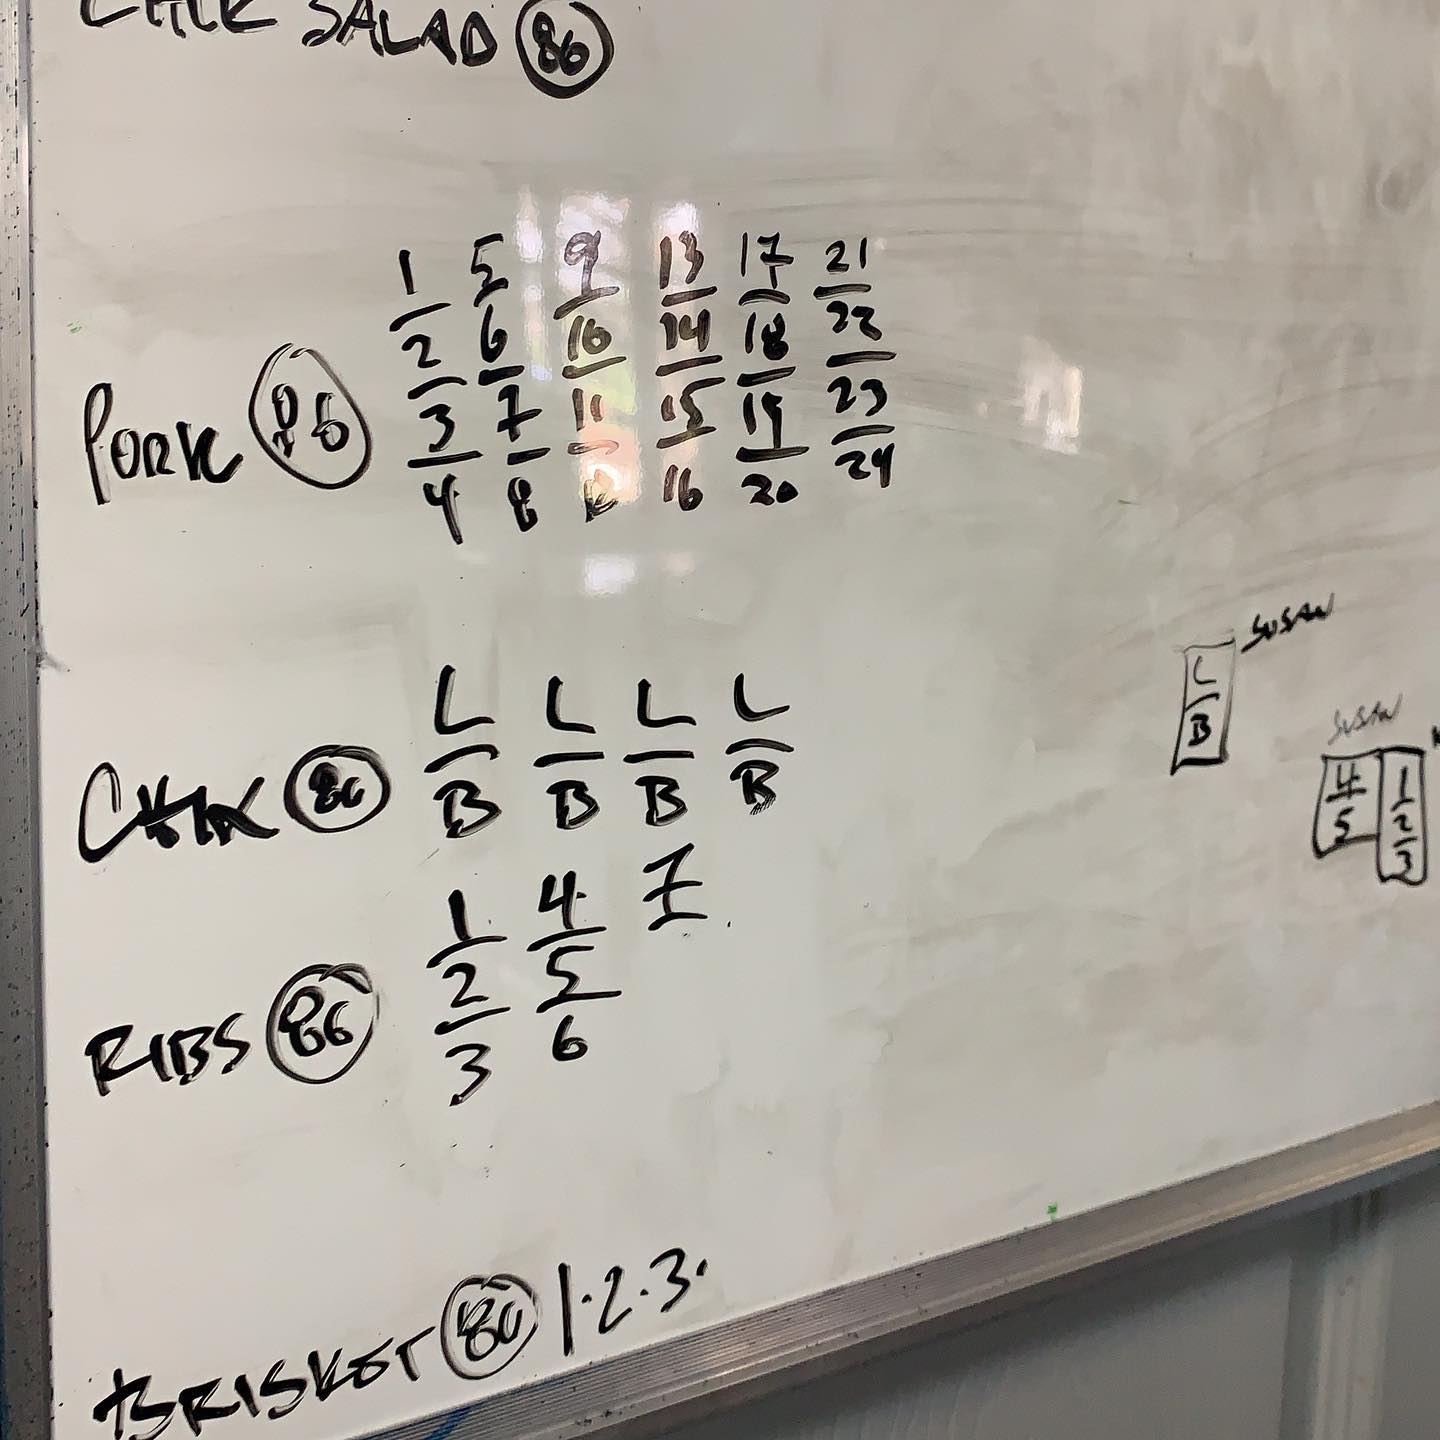 SALAD 86
1 5 9 13 17 21
2 6 10 14 18 22
3 7 11 15 19 23
4 8 12 16 20 24
PORK 86
L L L L
B B B B
CHIX 86
1 4 7
2 5
3 6
RIBS 86
BRISKET 86 1·2·3·
SUSAN
L
B
SUSAN
4 1
5 2
3